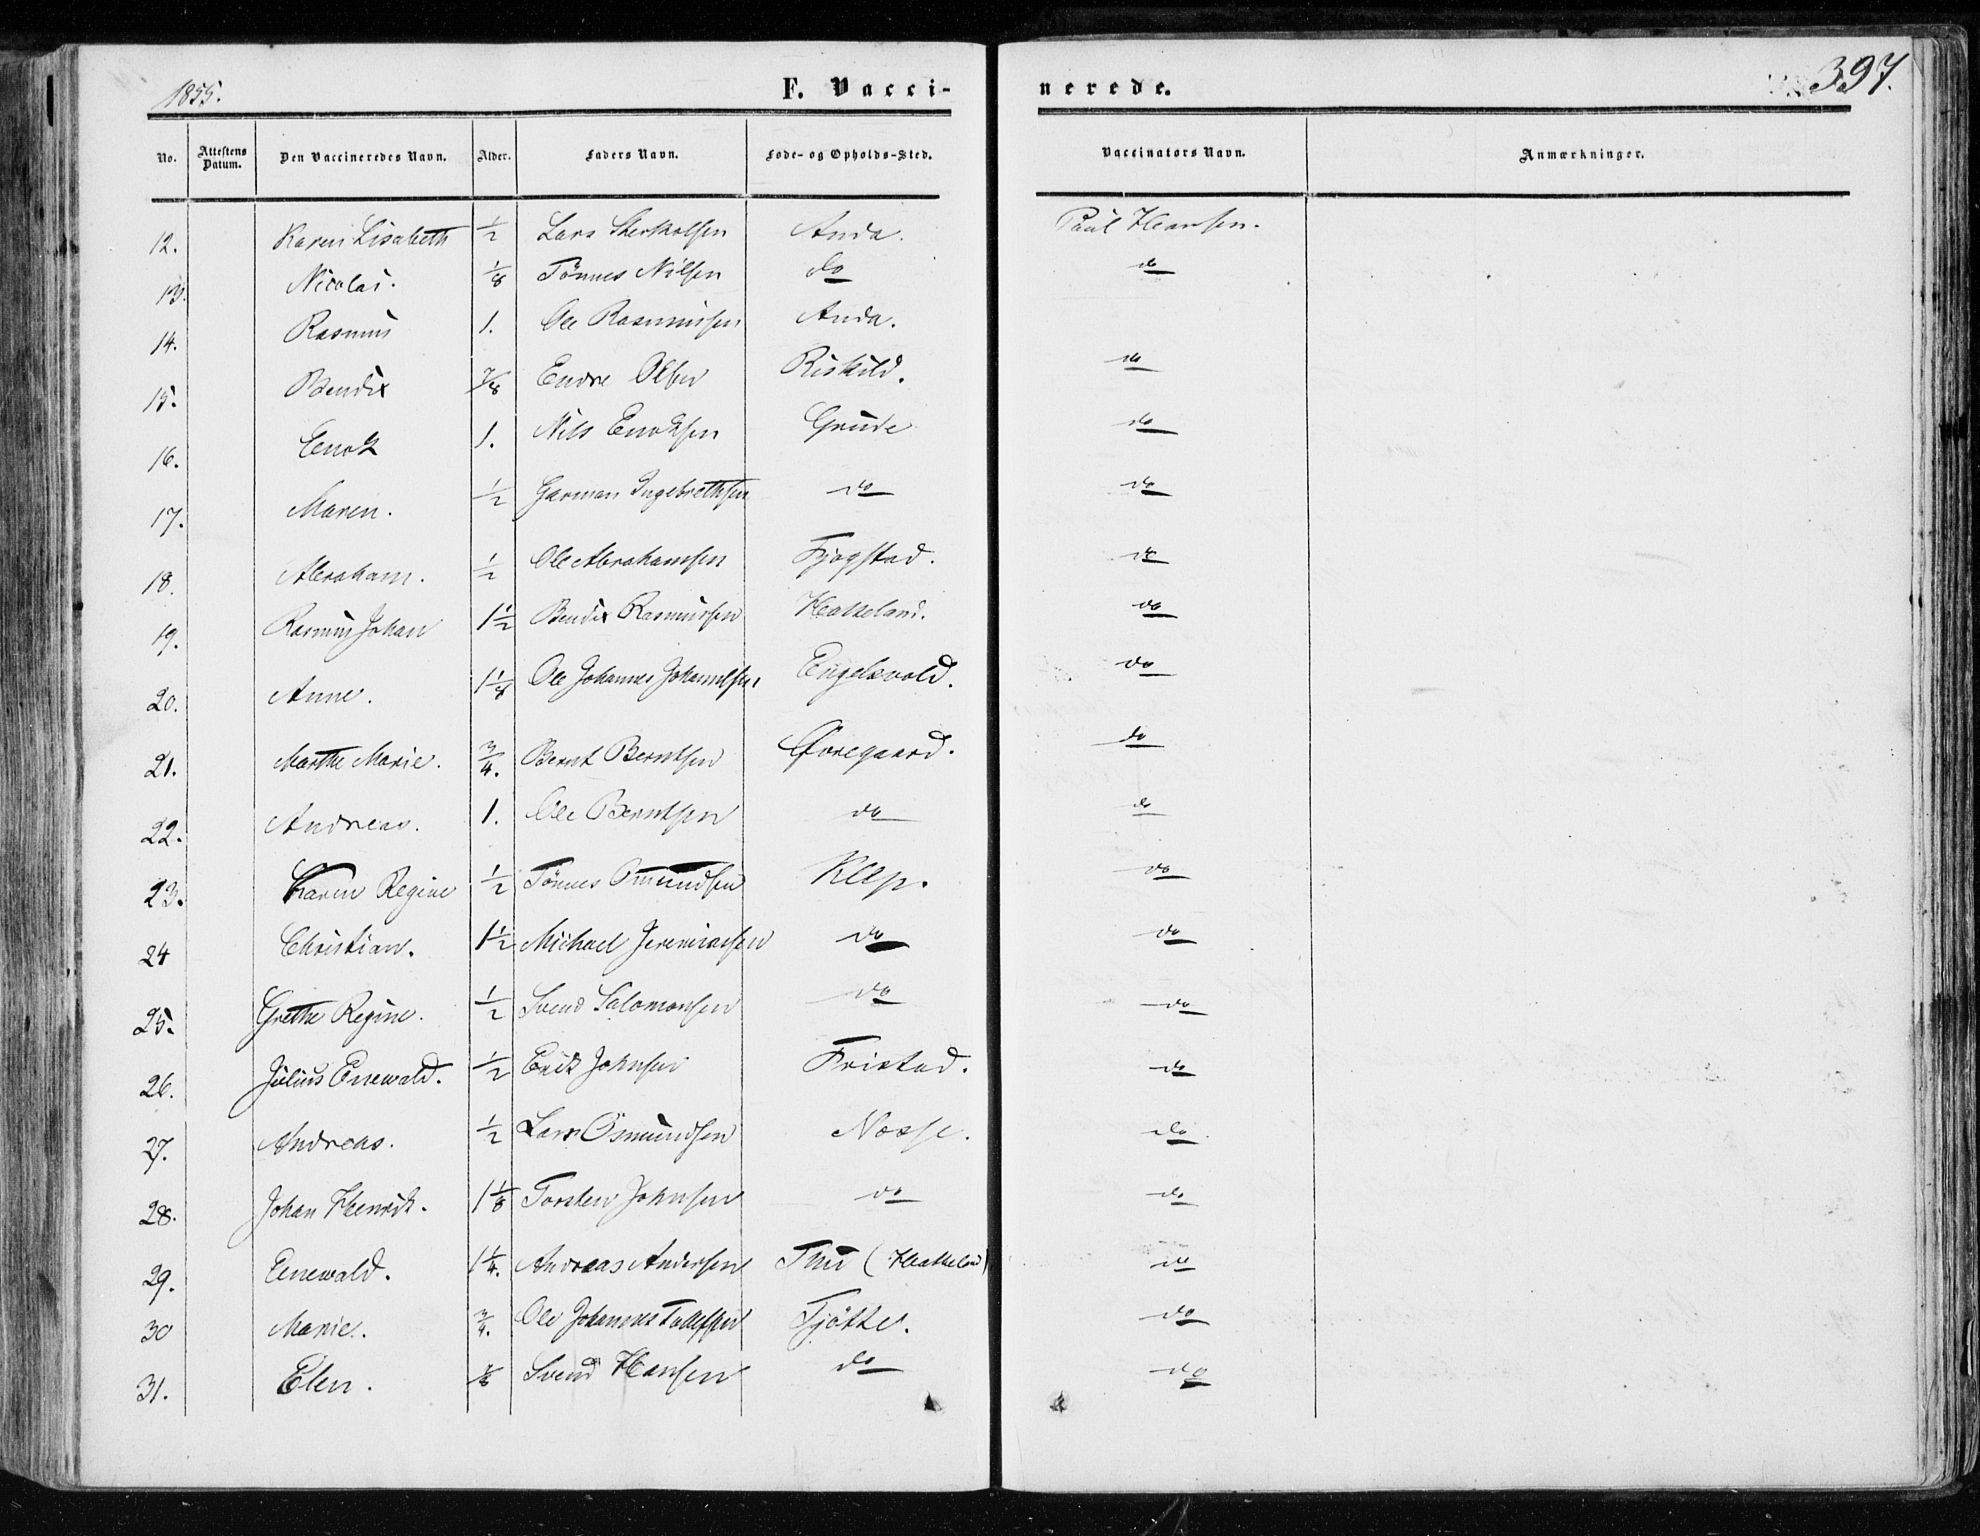 1855.
F. Vacci-
nerede.
397.
No. Attestens Datum. Den Vaccineredes Navn. Alder. Faders Navn. Føde- og Opholds-Sted. Vaccinators Navn. Anmærkninger.
12. Karen Lisabeth 1/2 Lars Anda. Paul Hansen.
13. Nicolai. 1/8 Tönnes Nilsen do do
14. Rasmus 1. Ole Rasmussen Anda.
15. Bendix 7/8 Endre Olsen Riskild. do
16. Enok 1. Nils Enoksen Grude do
17. Maren. 1/2 Garman Ingebrethsen do do
18. Abraham. 1/2 Ole Abrahamsen Fjogstad. do
19. Rasmus Johan 1 1/2 Bendix Rasmussen Hatteland. do
20. Anne. 1 1/8 Ole Johannes Johannessen Engelsvold. do
21. Marthe Marie. 3/4. Bernt Berntsen Øvregaard. do
22. Andreas. 1. Ole Berntsen do do
23. Karen Regine 1/2 Tönnes Omundsen Klep. do
24 Christian. 1 1/2 Michael Jeremiasen do do
25. Grethe Regine. 1/2 Svend Salomonsen do do
26. Julius Enewald. 1/2 Erik Johnsen Fristad. do
27. Andreas. 1/2 Lars Osmundsen Næsse. do
28. Johan Henrik. 1 1/8 Torsten Johnsen do do
29. Enewald. 1 1/4. Andreas Andersen Thu (Hatteland) do
30 Marie. 3/4. Ole Johannes Tollefsen Tjötte. do
31. Elen. Svend Hansen do do